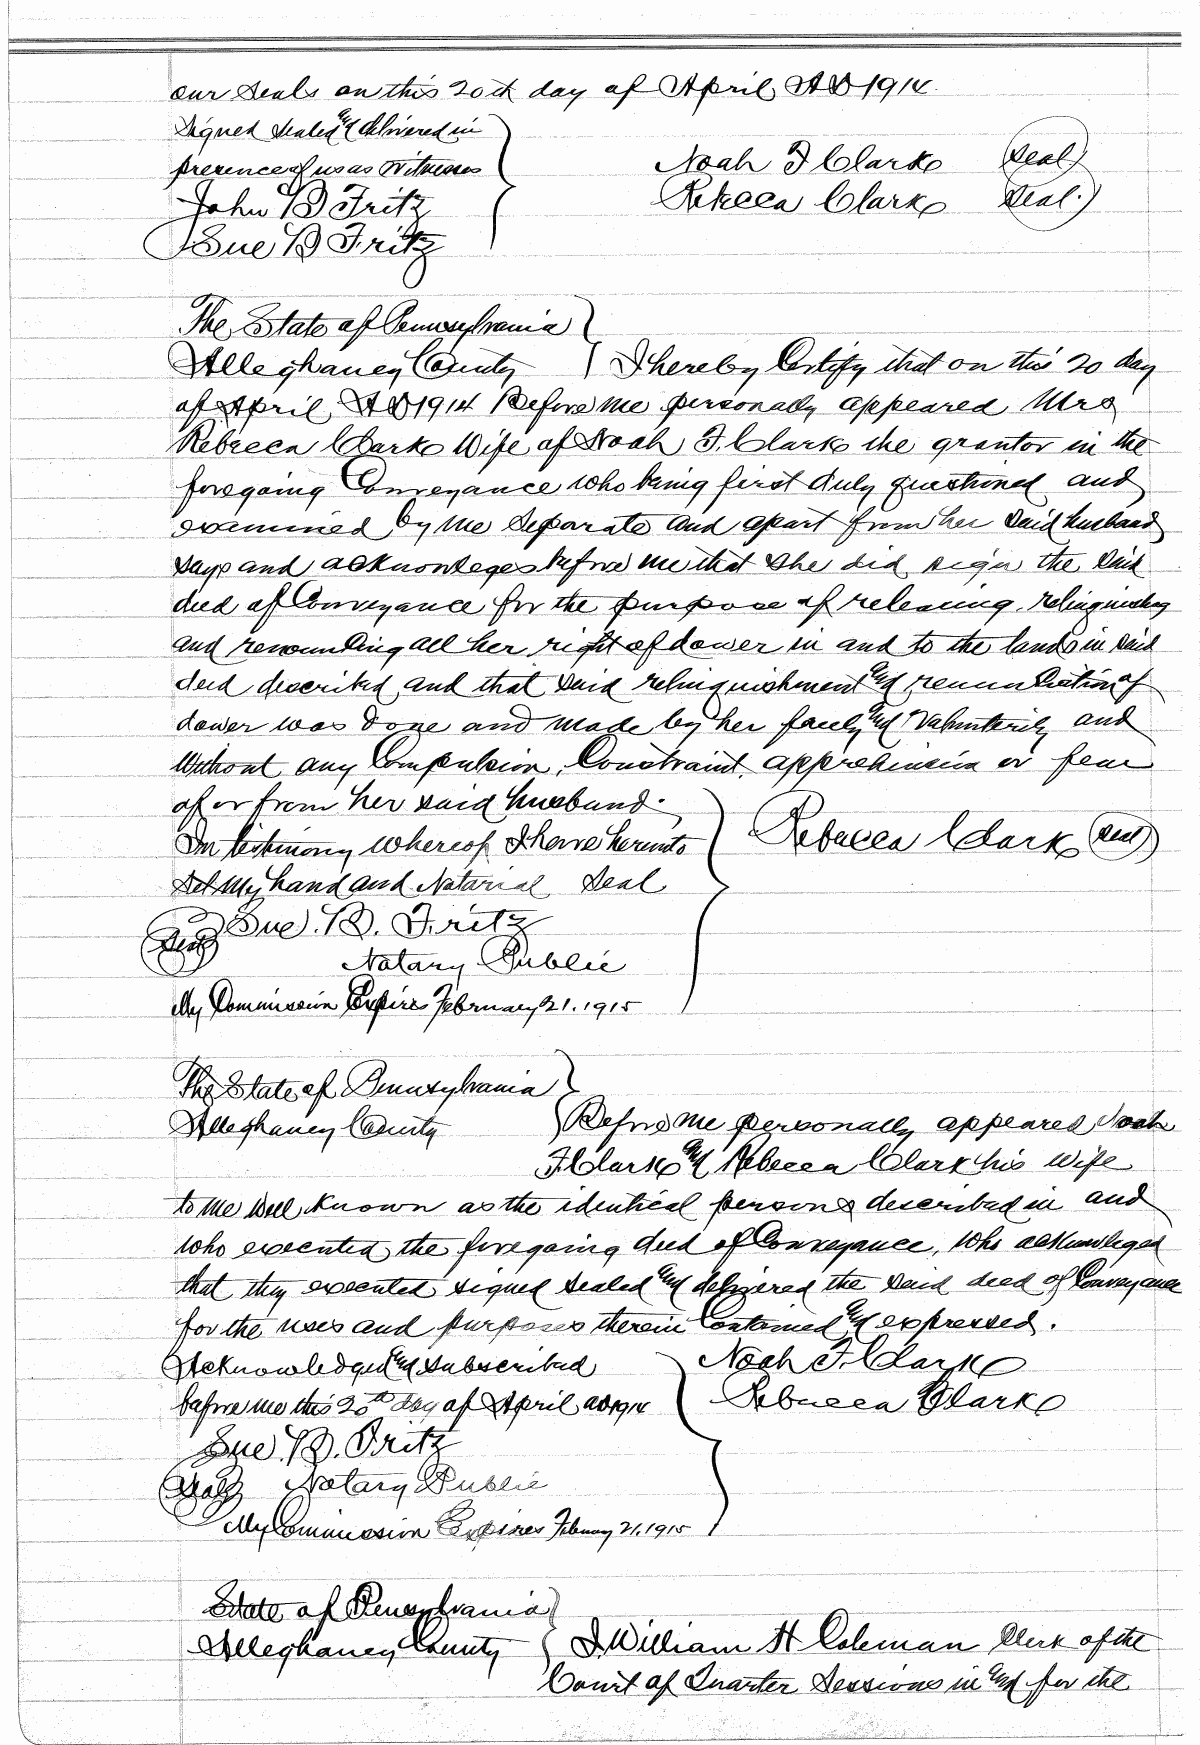 our Seals on this 20th day of April AD 1914.
Signed sealed and delivered in
presence of us as Witnesses
Noah F Clark (Seal)
John B Fritz
Rebecca Clark (Seal.)
Sue B Fritz
The State of Pennsylvania
Alleghaney County I hereby Certify that on this 20 day
of April AD 1914 Before me personally appeared Mrs
Rebecca Clark Wife of Noah F. Clark the grantor in the
foregoing Conveyance who being first duly questioned and
examined by me separate and apart from her said husband
says and acknowleges before me that she did sign the said
deed of Conveyance for the purpose of releasing, relinquishing
and renouncing all her right of dower in and to the lands in said
deed described and that said relinquishment and renunciation of
dower was done and made by her freely and Voluntarily and
Without any Compulsion, Constraint, apprehension or fear
of or from her said husband.
In testimony Whereof I have hereunto
Rebecca Clark (Seal)
Set My hand and Notarial Seal
(Seal) Sue. B. Fritz
Notary Public
My Commission Expires February 21. 1915
The State of Pennsylvania
Alleghaney County Before me personally appeared Noah
F Clark and Rebecca Clark his Wife
to me well known as the identical persons described in and
who executed the foregoing deed of Conveyance, Who acknowleged
that they executed signed sealed and delivered the said deed of Conveyance
for the uses and purposes therein Contained and expressed.
Acknowledged and subscribed
Noah F. Clark
before me this 20th day of April AD 1914
Rebecca Clark
Sue. B. Fritz
(Seal) Notary Public
My Commission Expires Febuary 21, 1915
State of Pennsylvania
Alleghaney County I William H Coleman Clerk of the
Court of Quarter Sessions in and for the